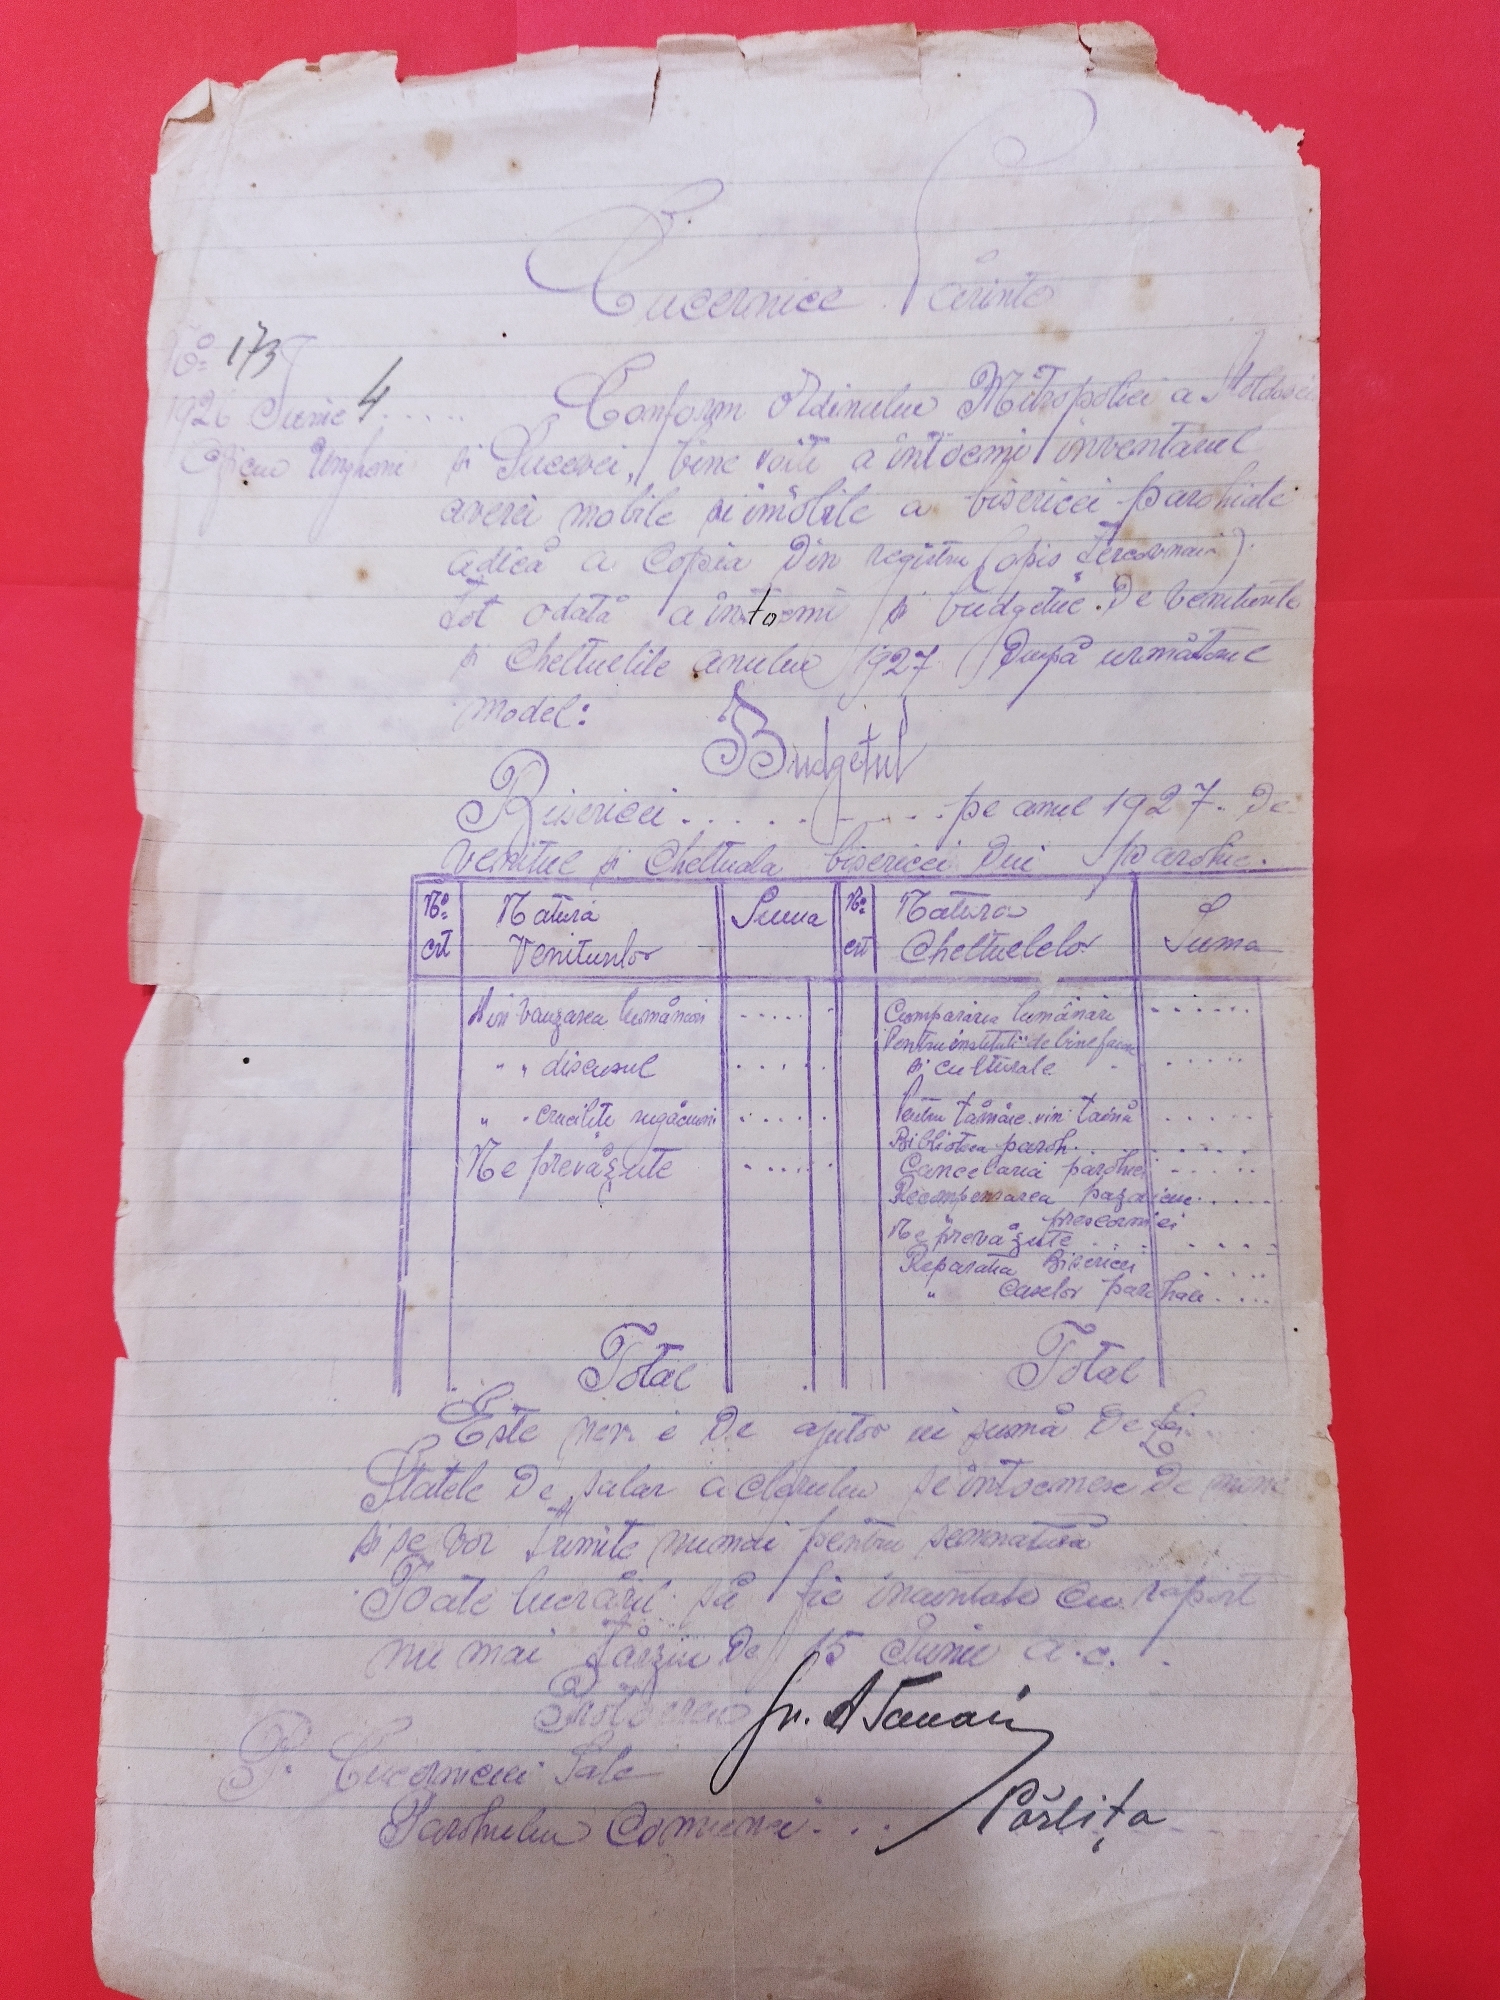 Cucernice Părinte
No 173
1926 Iunie 4 .....
Conform Ordinului Mitropoliei a Moldovei
și Sucevei, bine voiți a întocmi inventarul
averei mobile și imobile a bisericei parohiale
adică a copia din registru (opis
Tot odată a întocmi și budgetul de veniturile
și cheltuelile anului 1927 după următorul
model:
Budgetul
Bisericei . . . . . . . . . pe anul 1927. De
venitul și cheltuala bisericei din parohie.
No crt | Natura Veniturilor | Suma | No crt | Natura Cheltuelelor | Suma
Din vânzarea lumânări ..... Cumpărarea lumânări ......
Pentru instituții de binefacere
" " discusul ..... și culturale .....
" " rugăciuni ..... Pentru tămâie vin taină .....
Biblioteca paroh. .....
Ne prevăzute ..... Cancelaria parohiei .....
Recompensarea .....
" prescornicei
Ne prevăzute .....
Reparația Bisericei ....
" Caselor parohiale ....
Total Total
Este nevoe de ajutor în sumă de Lei
Statele de salar a clerului se întocmesc de mine
și se vor trimite numai pentru semnătură
Toate lucrările să fie înaintate cu raport
nu mai târziu de 15 Iunie a.c.
Protoereu
P. Cucerniciei Sale
Parohului Comunei . . . Pârlița